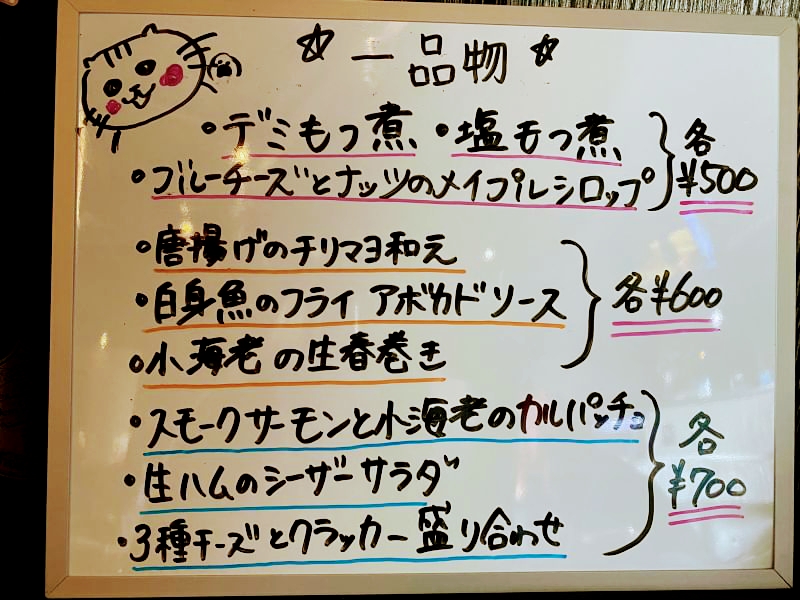 ☆一品物☆
・デミもつ煮 ・塩もつ煮
・ブルーチーズとナッツのメイプルシロップ
各 ¥500
・唐揚げのチリマヨ和え
・白身魚のフライ アボカドソース
・小海老の生春巻き
各¥600
・スモークサーモンと小海老のカルパッチョ
・生ハムのシーザーサラダ
・3種チーズとクラッカー盛り合わせ
各 ¥700